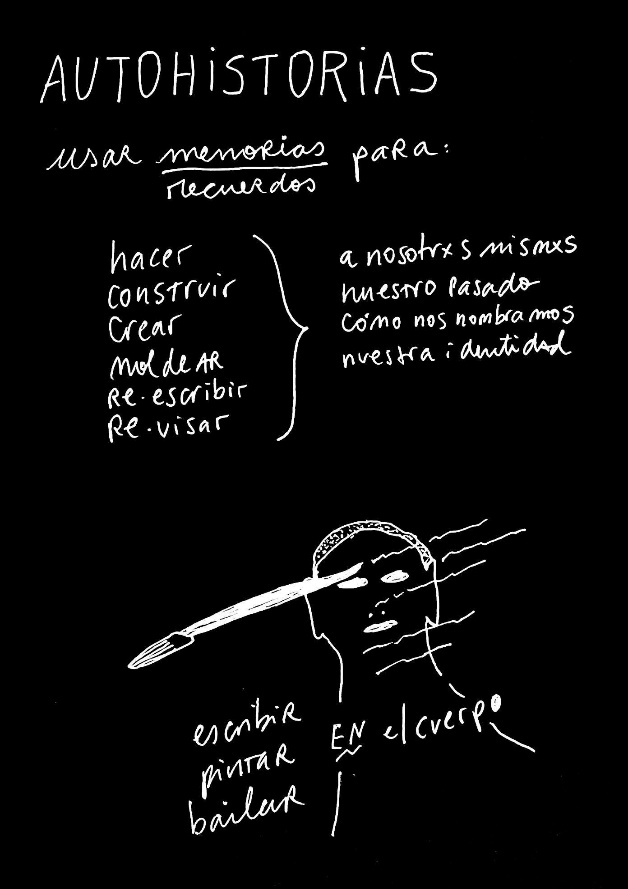 AUTOHISTORIAS
usar memorias para:
recuerdos
hacer
construir
crear
moldear
re-escribir
re-visar
a nosotrxs mismxs
nuestro pasado
cómo nos nombramos
nuestra identidad
escribir
pintar
bailar
EN el cuerpo